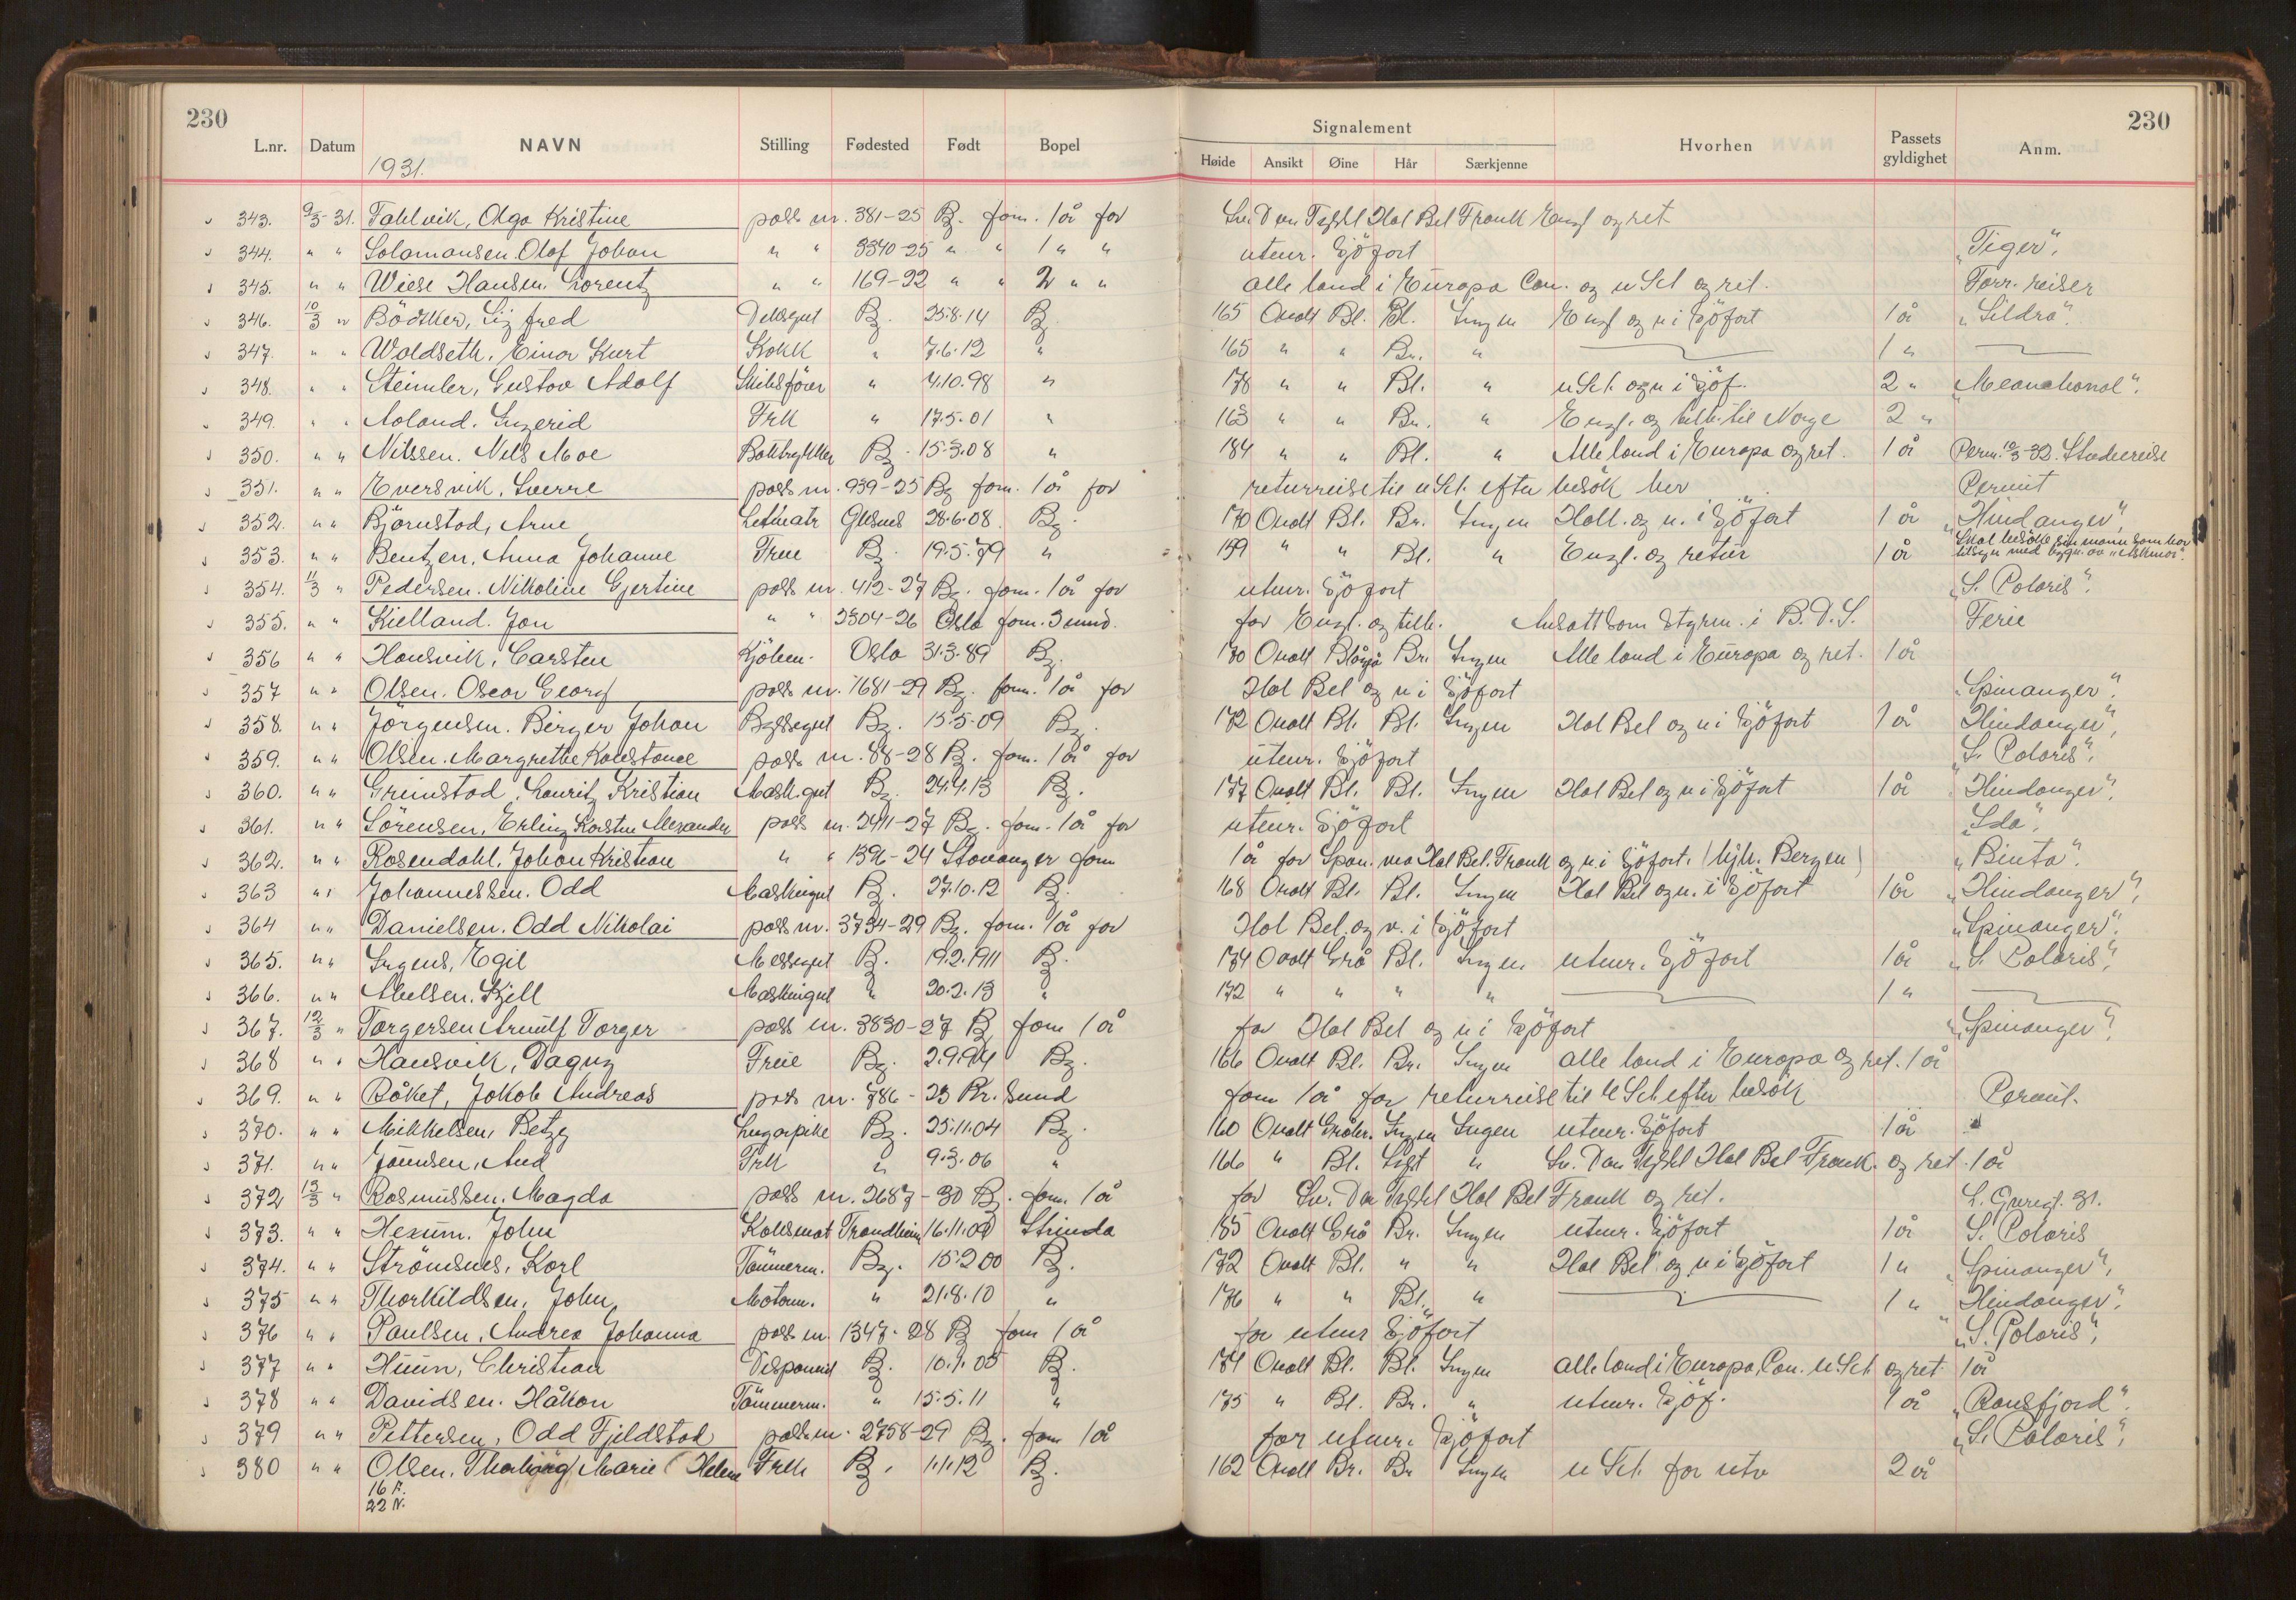 230
230
L.nr. Datum NAVN Stilling Fødested Født Bopel Signalement Høide Ansikt Øine Hår Særkjenne Hvorhen Passets gyldighet Anm.
1931.
343. 9/3-31. Tahlvik, Olga Kristine pass nr. 381-25 Bg. forn. 1 år for Sv. Dan Tyskl Hol Bel Frank Engl og ret
344. " " Solamonsen. Olaf Johan " " 3340-25 " " 1 " " utenr. Sjöfart „Tiger".
345. " " Wiese Hansen Lorentz " " 169-22 " " 2 " " alle land i Europa Can. og u St og ret. Forr. reiser
346. 10/3 " Bödtker, Sigfred Dekksgut Bg. 25.8.14 Bg 165 Ovalt Bl. Bl. Ingen Engl og u i Sjöfart 1 år „Sildra".
347. " " Woldseth, Einar Kurt Kokk " 7.6.12 " 165 " " Br. " 1 "
348. " " Steimler, Gustav Adolf Skibsförer " 4.10.98 " 178 " " Bl. " u St. og u i Sjöf. 2 "
349. " " Aoland. Ingerid Frk " 17.5.01 " 163 " " Br. " Engl. og tilb. til Norge 2 "
350. " " Nilssen. Nils Moe Boktrykker Bg. 15.3.08 " 184 " " Bl. " Alle land i Europa og ret. 1 år Perm. 10/3-32. Studiereise
351. " " Eversvik, Sverre pass nr. 939-25 Bg forn. 1 år for returreise til u St. efter besök her Permit
352. " " Björnstad, Arne 28.6.08. Bg. 170 Ovalt Bl. Br. Ingen Holl. og u. i Sjöfart 1 år „Hindanger".
353. " " Bentzen, Anna Johanne Frue Bg. 19.5.79 " 159 " " Bl. " Engl. og retur 1 år Skal besöke sin mann som har tilsyn med bygg. av
354. 11/3 " Pedersen. Nikoline Gjertine pass nr. 412-27 Bg. forn. 1 år for utenr. Sjöfart „S. Polaris".
355. " " Kielland. Jon " " 3304-26 Oslo forn. 3 mnd. for Engl. og tilb. Ansatt som Styrm. i B.D.S. Ferie
356 " " Hansvik, Carsten Kjöbm. Oslo 31.3.89 Bg. 180 Ovalt Blågrå Br. Ingen Alle land i Europa og ret. 1 år
357 " " Olsen. Oscar Georg pass nr. 1681-29 Bg. forn. 1 år for Hol Bel og u i Sjöfart „Spinanger".
358. " " Jörgensen. Birger Johan Byssegut Bg. 15.5.09 Bg. 172 Ovalt Bl. Bl. Ingen Hol Bel og u i Sjöfart 1 år „Hindanger",
359. " " Olsen. Margrethe Konstance pass nr. 88-28 Bg. forn. 1 år for utenr. Sjöfart „S. Polaris".
360. " " Grimstad, Lauritz Kristian Mask.gut Bg. 24.4.13 Bg. 177 Ovalt Bl. Bl. Ingen Hol Bel og u i Sjöfart 1 år „Hindanger".
361. " " Sörensen, Erling Karsten Alexander pass nr. 2411-27 Bg. forn. 1 år for utenr. Sjöfart „Ida".
362. " " Rosendahl, Johan Kristian " " 1396-24 Stavanger forn 1 år for Span. via Hol Bel. Frank og u i Sjöfart. (hjh. Bergen) „Binta".
363 " " Johannessen. Odd Maskingut Bg. 27.10.12 Bg. 168 Ovalt Bl. Bl. Ingen Hol Bel og u. i Sjöfart 1 år „Hindanger",
364 " " Danielsen. Odd Nikolai pass nr. 3734-29 Bg. forn. 1 år for Hol Bel. og u. i Sjöfart „Spinanger".
365. " " Irgens, Egil Messegut Bg. 19.2.1911 Bg. 174 Ovalt Grå Bl. Ingen utenr. Sjöfart 1 år „S. Polaris",
366. " " Abelsen. Kjell Maskingut " 20.2.13 " 172 " " " " 1 "
367. 12/3 " Torgersen Arnulf Torger pass nr. 3830-27 Bg forn 1 år for Hol Bel og u i Sjöfart „Spinanger".
368 " " Hansvik, Dagny Frue Bg. 2.9.94 Bg. 166 Ovalt Bl. Br. Ingen alle land i Europa og ret. 1 år
369. " " Båket, Jakob Andreas pass nr. 786-23 Kr.sund forn 1 år for returreise til u St efter besök Permit.
370. " " Mikkelsen, Betzy Lugarpike Bg. 25.11.04 Bg. 160 Ovalt Gråbr. Ingen utenr. Sjöfart 1 år
371. " " Jönnsen, Aud Frk " 9.3.06 " 166 " Bl. Lyst " Sv. Dan Tyskl Hol Bel Frank. og ret. 1 år
372 13/3 " Rasmussen. Magda pass nr. 2687-30 Bg. forn 1 år for Sv. Dan Tyskl Hol Bel Frank og ret.
373. " " Hexum. John Trondheim 16.11.00 Strinda 185 Ovalt Grå Br. Ingen utenr. Sjöfart 1 år S. Polaris
374. " " Strömsnes, Karl Tömmerm. Bg. 15.2.00 Bg. 172 Ovalt Bl. " " Hol Bel og u i Sjöfart 1 " „Spinanger",
375 " " Thorkildsen, John, Motorm. " 21.8.10 " 176 " " Bl. " 1 " „Hindanger".
376 " " Paulsen, Andrea Johanna pass nr. 1347-28 Bg forn 1 år for utenr Sjöfart „S. Polaris",
377 " " Huun, Christian Disponent Bg. 10.1.05 Bg. 171 Ovalt Bl. Bl. Ingen alle land i Europa, Can. u.St og ret 1 år
378 " " Davidsen. Håkon Tömmerm. " 15.5.11 " 175 " Bl. Br. " utenr. Sjöf. 1 år „Ransfjord".
379 " " Pettersen, Odd Fjeldstad pass nr. 2758-29 Bg. forn 1 år for utenr. Sjöfart „S. Polaris".
380 " " Olsen. Thorbjörg Marie Helene Frk Bg. 1.1.12 Bg. 162 Ovalt Br. Br Ingen u St. for utv 2 år
16 F.
22 N.